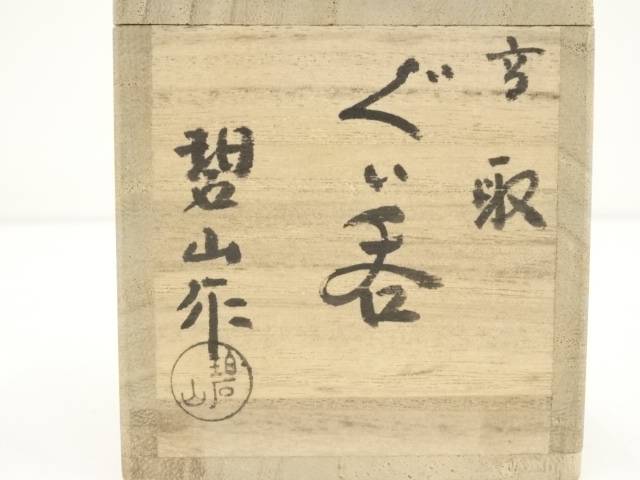 高取
ぐい呑
碧山作
碧山